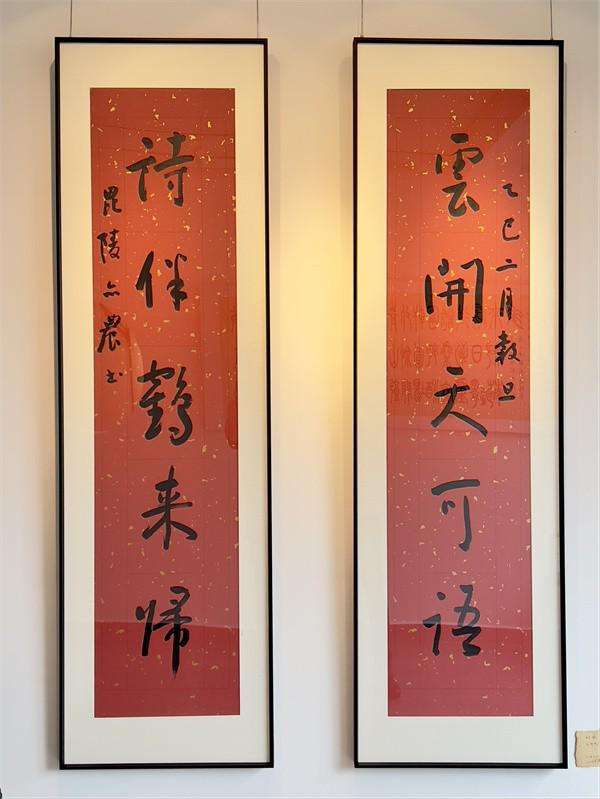 雲開天可語
乙巳二月穀旦
詩伴鶴来歸
毘陵亦農书